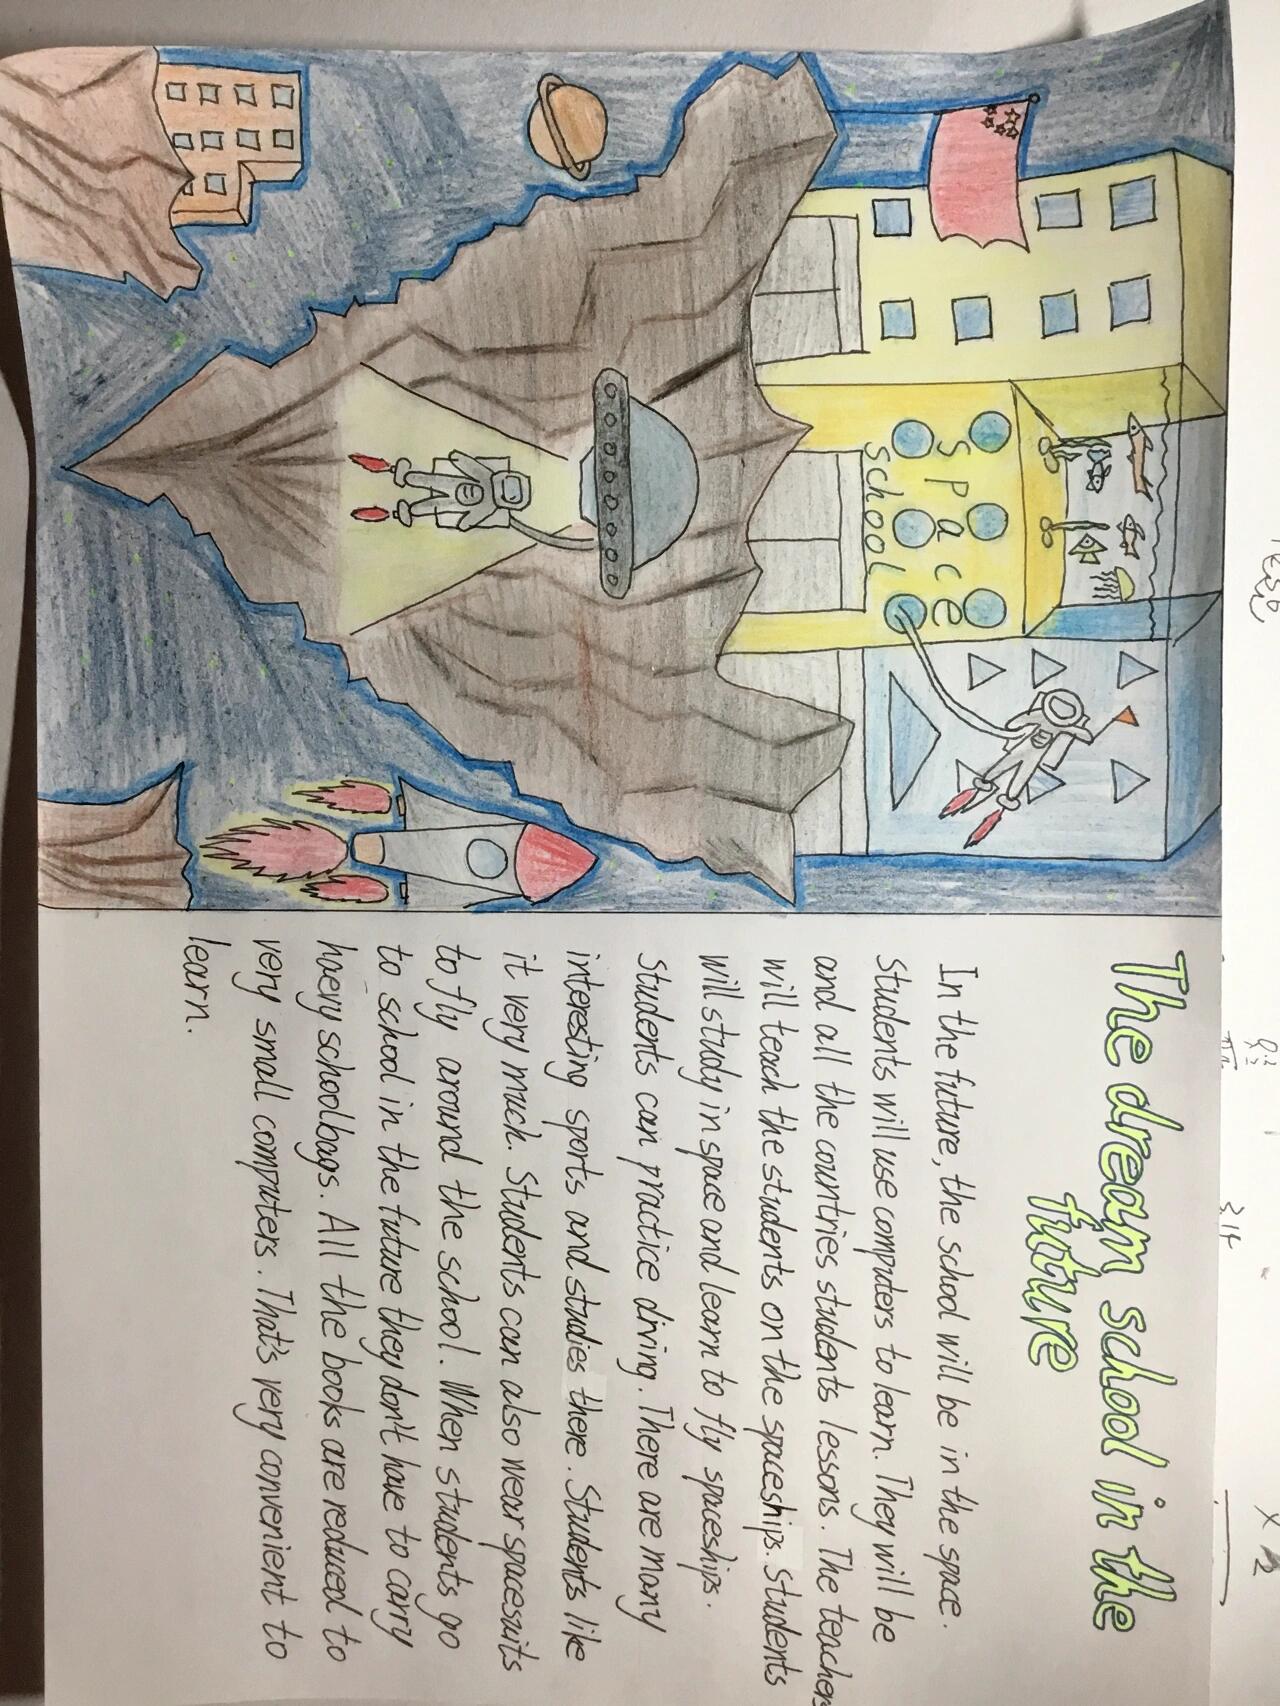 The dream school in the
future
In the future, the school will be in the space.
Students will use computers to learn. They will be
and all the countries students lessons. The teachers
will teach the students on the spaceships. Students
will study in space and learn to fly spaceships.
Students can practice diving. There are many
interesting sports and studies there. Students like
it very much. Students can also wear spacesuits
to fly around the school. When students go
to school in the future they don't have to carry
haevy schoolbags. All the books are reduced to
very small computers. That's very convenient to
learn.
space
school
3.14